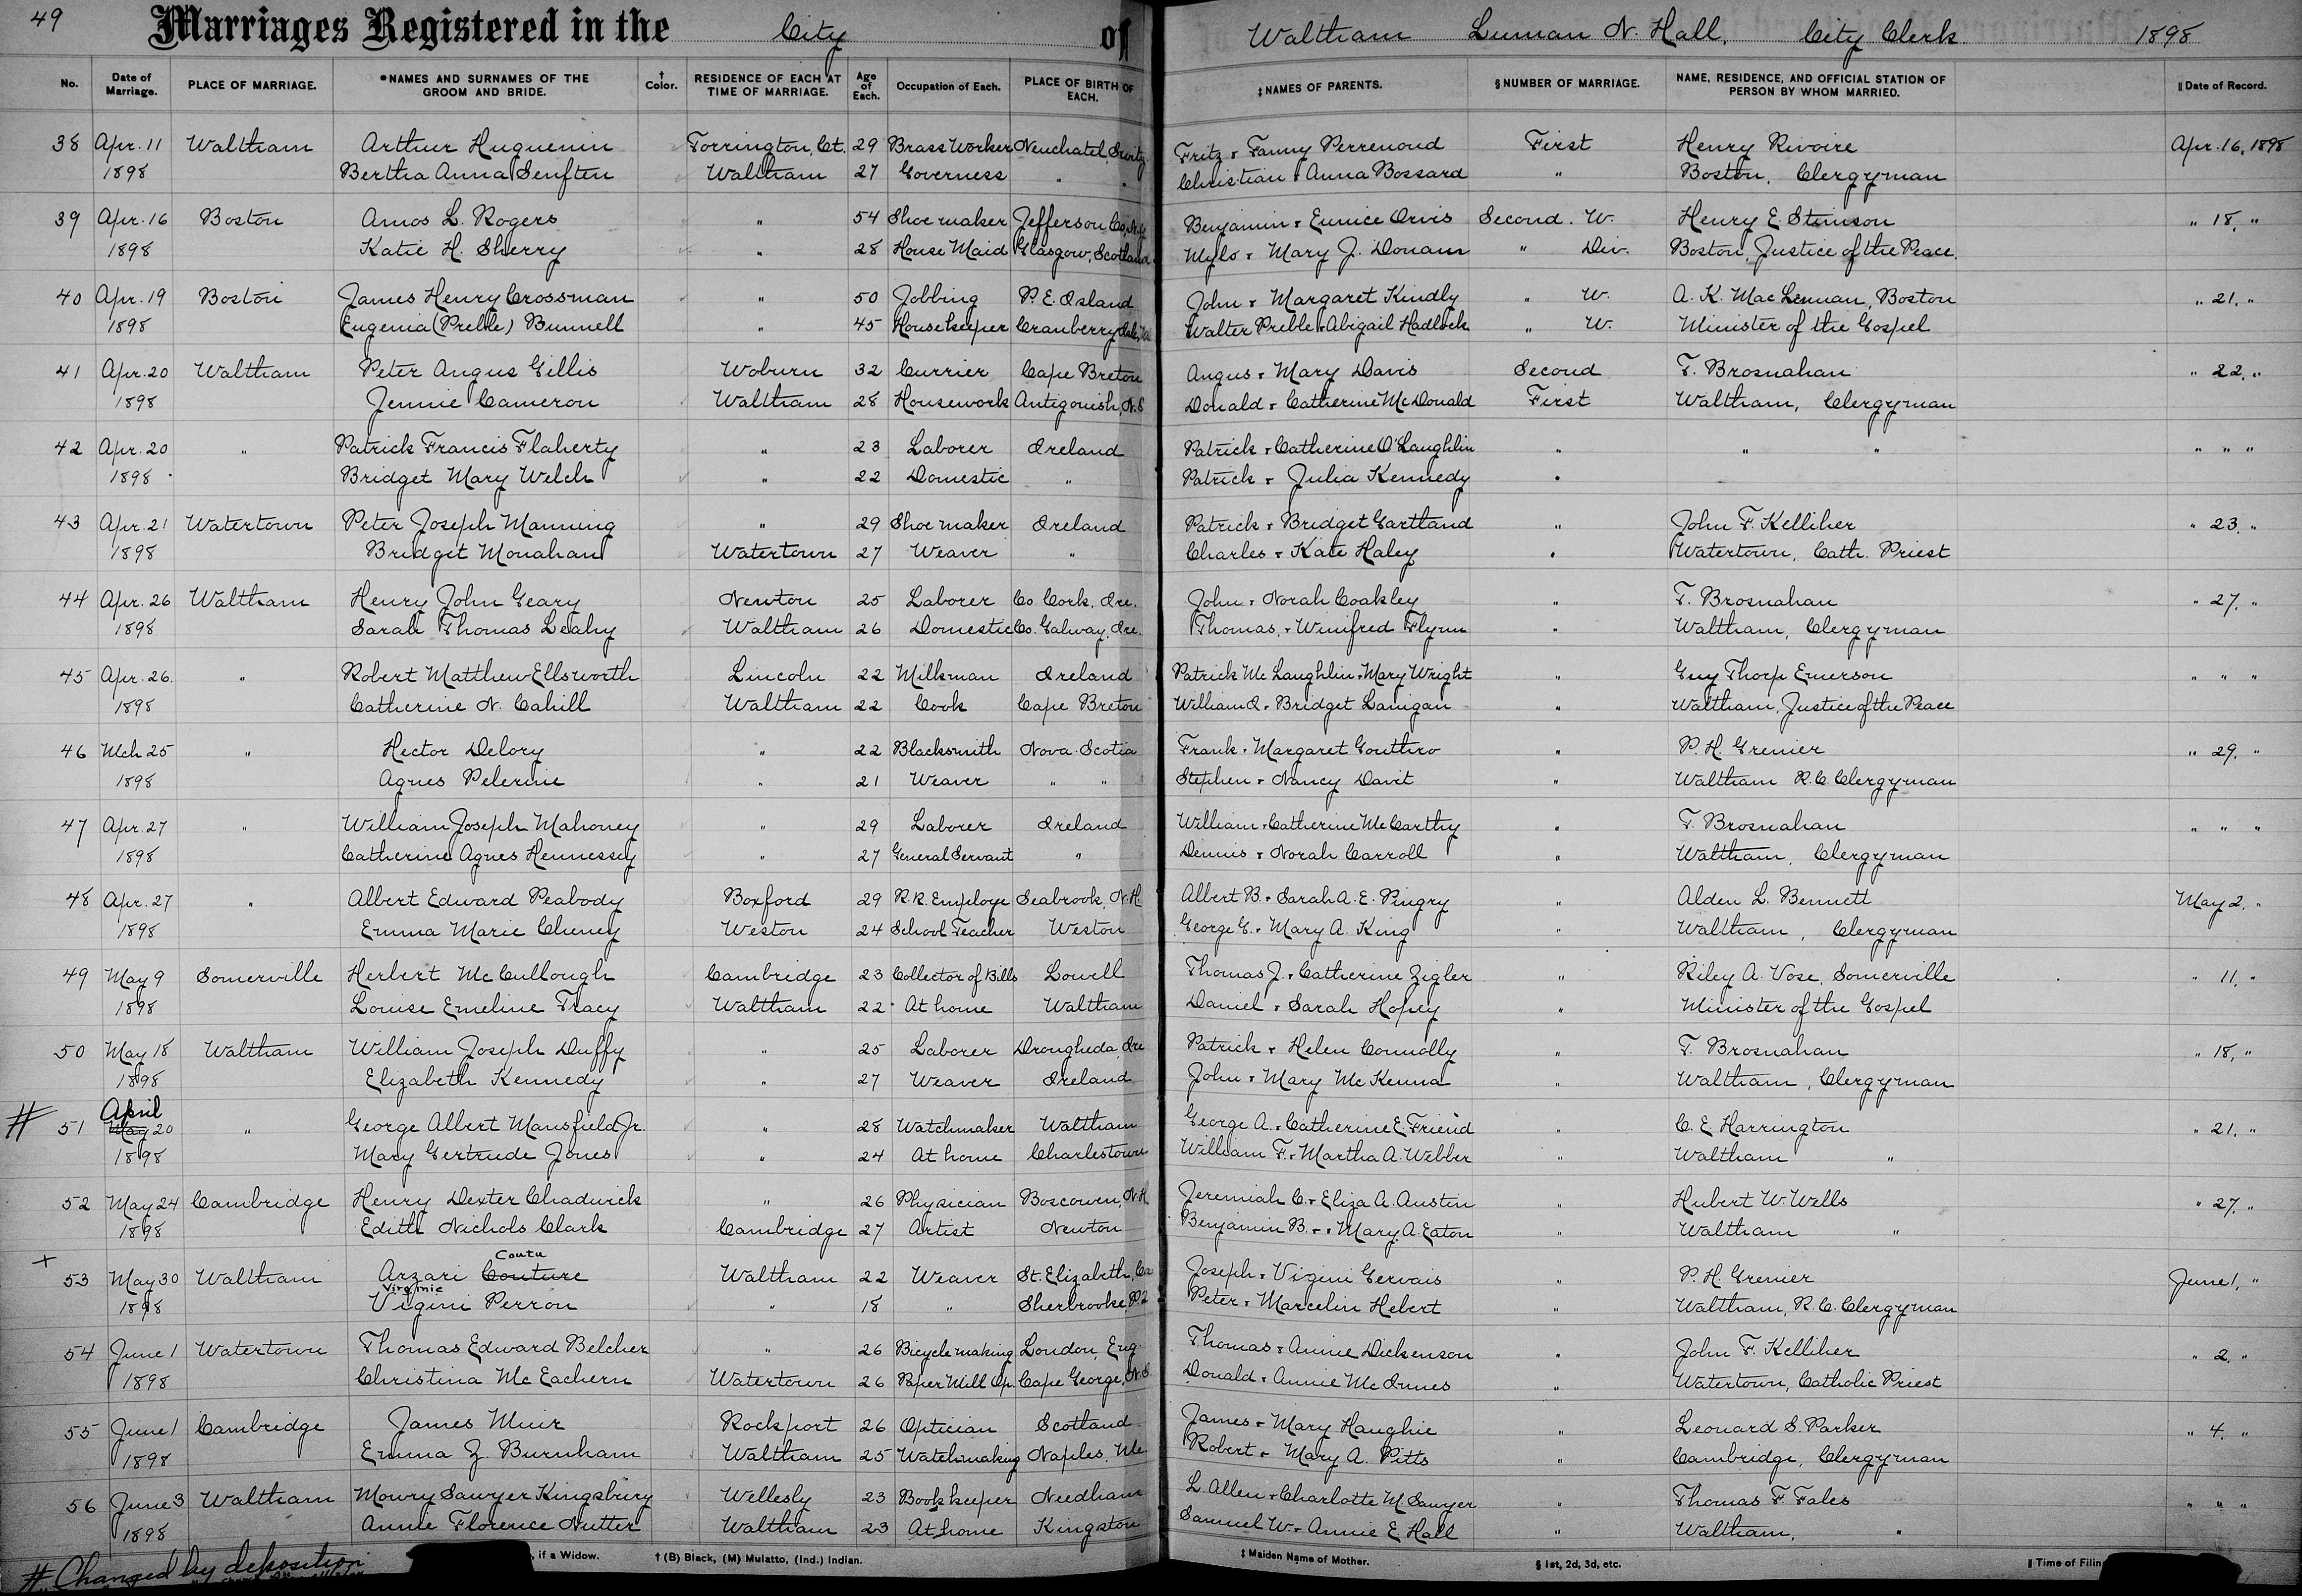 49 Marriages Registered in the City of Waltham Luman N. Hall, City Clerk 1898
No. Date of Marriage. PLACE OF MARRIAGE. *NAMES AND SURNAMES OF THE GROOM AND BRIDE. † Color. RESIDENCE OF EACH AT TIME OF MARRIAGE. Age of Each. Occupation of Each. PLACE OF BIRTH OF EACH. ‡NAMES OF PARENTS. §NUMBER OF MARRIAGE. NAME, RESIDENCE, AND OFFICIAL STATION OF PERSON BY WHOM MARRIED. ‖Date of Record.
38 Apr. 11 Waltham Arthur Huguenin Torrington, Ct. 29 Brass Worker Neuchatel, Switz. Fritz & Fanny Perrenoud First Henry Rivoire Apr. 16, 1898
1898 Bertha Anna Senften Waltham 27 Governess " " Christian & Anna Bossard " Boston, Clergyman
39 Apr. 16 Boston Amos L. Rogers " 54 Shoemaker Jefferson Co. N.Y. Benjamin & Eunice Orvis Second. W. Henry E. Stimson " 18, "
1898 Katie H. Sherry " 28 House Maid Glasgow, Scotland Mylo & Mary J. Donam " Div. Boston, Justice of the Peace.
40 Apr. 19 Boston James Henry Crossman " 50 Jobbing P. E. Island John & Margaret Kindly " W. A. K. MacLennan, Boston " 21, "
1898 Eugenia (Preble) Bunnell " 45 Housekeeper Cranberry Isle, Me Walter Preble & Abigail Hadlock " W. Minister of the Gospel
41 Apr. 20 Waltham Peter Angus Gillis Woburn 32 Currier Cape Breton Angus & Mary Davis Second T. Brosnahan " 22, "
1898 Jennie Cameron Waltham 28 Housework Antigonish, N.S Donald & Catherine McDonald First Waltham, Clergyman
42 Apr. 20 " Patrick Francis Flaherty " 23 Laborer Ireland Patrick & Catherine O'Laughlin " " " " " "
1898 Bridget Mary Welch " 22 Domestic " Patrick & Julia Kennedy "
43 Apr. 21 Watertown Peter Joseph Manning " 29 Shoemaker Ireland Patrick & Bridget Gartland " John F. Kelliher " 23, "
1898 Bridget Monahan Watertown 27 Weaver " Charles & Kate Haley " Watertown, Cath. Priest
44 Apr. 26 Waltham Henry John Geary Newton 25 Laborer Co. Cork, Ire. John & Norah Coakley " T. Brosnahan " 27, "
1898 Sarah Thomas Leahy Waltham 26 Domestic Co. Galway, Ire. Thomas, & Winifred Flynn " Waltham, Clergyman
45 Apr. 26. " Robert Matthew Ellsworth Lincoln 22 Milkman Ireland Patrick McLaughlin & Mary Wright " Guy Thorp Emerson " " "
1898 Catherine N. Cahill Waltham 22 Cook Cape Breton William J. & Bridget Lanigan " Waltham, Justice of the Peace
46 Mch 25 " Hector Delory " 22 Blacksmith Nova Scotia Frank & Margaret Gouthro " P. H. Grenier " 29, "
1898 Agnes Pelerine " 21 Weaver " " Stephen & Nancy Davit " Waltham R.C. Clergyman
47 Apr. 27 " William Joseph Mahoney " 29 Laborer Ireland William & Catherine McCarthy " T. Brosnahan " " "
1898 Catherine Agnes Hennessey " 27 General Servant " Dennis & Norah Carroll " Waltham, Clergyman
48 Apr. 27 " Albert Edward Peabody Boxford 29 R.R. Employe Seabrook, N.H. Albert B. & Sarah A. E. Pingry " Alden L. Bennett May 2, "
1898 Emma Marie Cheney Weston 24 School Teacher Weston George G. & Mary A. King " Waltham, Clergyman
49 May 9 Somerville Herbert McCullough Cambridge 23 Collector of Bills Lowell Thomas J. & Catherine Zigler " Riley A. Vose, Somerville " 11, "
1898 Louise Emeline Tracy Waltham 22 At home Waltham Daniel & Sarah Hopey " Minister of the Gospel
50 May 18 Waltham William Joseph Duffy " 25 Laborer Drougheda, Ire Patrick & Helen Connolly " T. Brosnahan " 18, "
1898 Elizabeth Kennedy " 27 Weaver Ireland John & Mary McKenna " Waltham, Clergyman
April
# 51 May 20 " George Albert Mansfield Jr. " 28 Watchmaker Waltham George A. & Catherine E. Friend " C. E. Harrington " 21, "
1898 Mary Gertrude Jones " 24 At home Charlestown William F. & Martha A. Webber " Waltham "
52 May 24 Cambridge Henry Dexter Chadwick " 26 Physician Boscowen, N.H. Jeremiah C. & Eliza A. Austin " Hubert W. Wells " 27, "
1898 Edith Nichols Clark Cambridge 27 Artist Newton Benjamin B. & Mary A. Eaton " Waltham "
Coutu
+ 53 May 30 Waltham Arzari Couture Waltham 22 Weaver St. Elizabeth, Ca Joseph & Vigini Gervais " P. H. Grenier June 1, "
Virginie
1898 Vigini Perron " 18 " Sherbrooke P.Q Peter & Marcelin Hebert " Waltham, R.C. Clergyman
54 June 1 Watertown Thomas Edward Belcher " 26 Bicycle making London, Eng. Thomas & Annie Dickenson " John F. Kelliher " 2, "
1898 Christina McEachern Watertown 26 Paper Mill Op. Cape George, N.S. Donald & Annie McInnes " Watertown, Catholic Priest
55 June 1 Cambridge James Muir Rockport 26 Optician Scotland James & Mary Haughie " Leonard S. Parker " 4, "
1898 Emma Z. Burnham Waltham 25 Watchmaking Naples, Me. Robert & Mary A. Pitts " Cambridge, Clergyman
56 June 3 Waltham Mowry Sawyer Kingsbury Wellesly 23 Bookkeeper Needham L. Allen & Charlotte M. Sawyer " Thomas F. Fales " " "
1898 Annie Florence Nutter Waltham 23 At home Kingston Samuel W. & Annie E. Hall " Waltham, "
# Changed by deposition , if a Widow. † (B) Black, (M) Mulatto, (Ind.) Indian. ‡ Maiden Name of Mother. § 1st, 2d, 3d, etc. ‖ Time of Filin